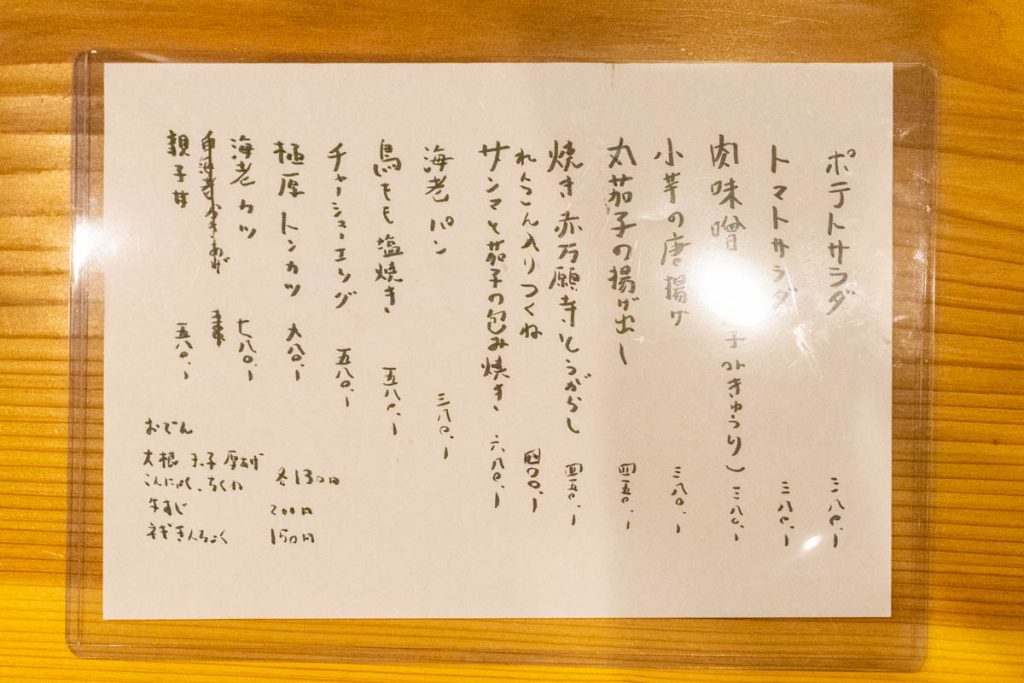 ポテトサラダ 三八〇.ー
トマトサラダ 三八〇.ー
肉味噌 子みきゅうり) 三八〇.ー
小芋の唐揚げ 三八〇.ー
丸茄子の揚げ出し 四五〇.ー
焼き赤万願寺とうがらし 四五〇.ー
れんこん入りつくね 四〇〇.ー
サンマと茄子の包み焼き、 六八〇.ー
海老パン 三八〇.ー
鳥もも塩焼き 五八〇.ー
チャーシューエッグ 五八〇.ー
極厚トンカツ 九八〇.ー
海老カツ 七八〇.ー
親子丼 五八〇.ー
おでん
大根 玉子 厚あげ
こんにゃく、ちくわ 各130円
牛すじ 200円
ネギきんちゃく 150円